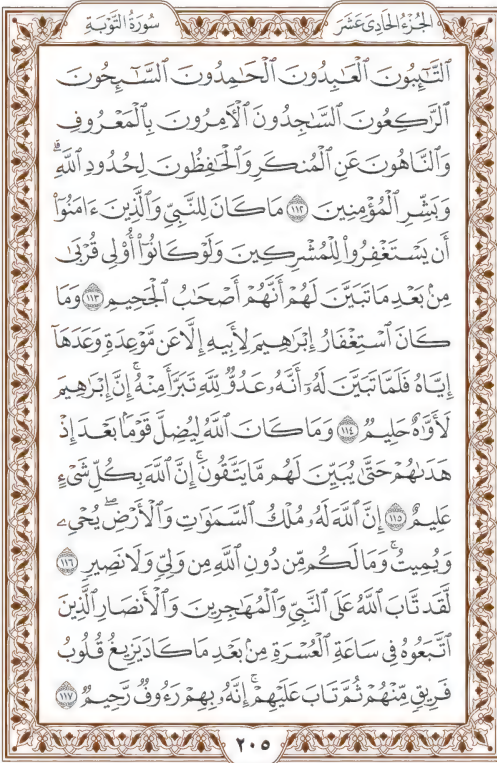 الجُزْءُ الحَادِى عَشَرَ
سُورَةُ التَّوْبَةِ
ٱلتَّـٰٓئِبُونَ ٱلْعَـٰبِدُونَ ٱلْحَـٰمِدُونَ ٱلسَّـٰٓئِحُونَ
ٱلرَّٰكِعُونَ ٱلسَّـٰجِدُونَ ٱلْأٓمِرُونَ بِٱلْمَعْرُوفِ
وَٱلنَّاهُونَ عَنِ ٱلْمُنكَرِ وَٱلْحَـٰفِظُونَ لِحُدُودِ ٱللَّهِۗ
وَبَشِّرِ ٱلْمُؤْمِنِينَ ١١٢ مَا كَانَ لِلنَّبِىِّ وَٱلَّذِينَ ءَامَنُوٓا۟
أَن يَسْتَغْفِرُوا۟ لِلْمُشْرِكِينَ وَلَوْ كَانُوٓا۟ أُو۟لِى قُرْبَىٰ
مِنۢ بَعْدِ مَا تَبَيَّنَ لَهُمْ أَنَّهُمْ أَصْحَـٰبُ ٱلْجَحِيمِ ١١٣ وَمَا
كَانَ ٱسْتِغْفَارُ إِبْرَٰهِيمَ لِأَبِيهِ إِلَّا عَن مَّوْعِدَةٍ وَعَدَهَآ
إِيَّاهُ فَلَمَّا تَبَيَّنَ لَهُۥٓ أَنَّهُۥ عَدُوٌّ لِّلَّهِ تَبَرَّأَ مِنْهُۚ إِنَّ إِبْرَٰهِيمَ
لَأَوَّٰهٌ حَلِيمٌ ١١٤ وَمَا كَانَ ٱللَّهُ لِيُضِلَّ قَوْمًۢا بَعْدَ إِذْ
هَدَىٰهُمْ حَتَّىٰ يُبَيِّنَ لَهُم مَّا يَتَّقُونَۚ إِنَّ ٱللَّهَ بِكُلِّ شَىْءٍ
عَلِيمٌ ١١٥ إِنَّ ٱللَّهَ لَهُۥ مُلْكُ ٱلسَّمَـٰوَٰتِ وَٱلْأَرْضِۖ يُحْىِۦ
وَيُمِيتُۚ وَمَا لَكُم مِّن دُونِ ٱللَّهِ مِن وَلِىٍّ وَلَا نَصِيرٍ ١١٦
لَّقَد تَّابَ ٱللَّهُ عَلَى ٱلنَّبِىِّ وَٱلْمُهَـٰجِرِينَ وَٱلْأَنصَارِ ٱلَّذِينَ
ٱتَّبَعُوهُ فِى سَاعَةِ ٱلْعُسْرَةِ مِنۢ بَعْدِ مَا كَادَ يَزِيغُ قُلُوبُ
فَرِيقٍ مِّنْهُمْ ثُمَّ تَابَ عَلَيْهِمْۚ إِنَّهُۥ بِهِمْ رَءُوفٌ رَّحِيمٌ ١١٧
٢٠٥